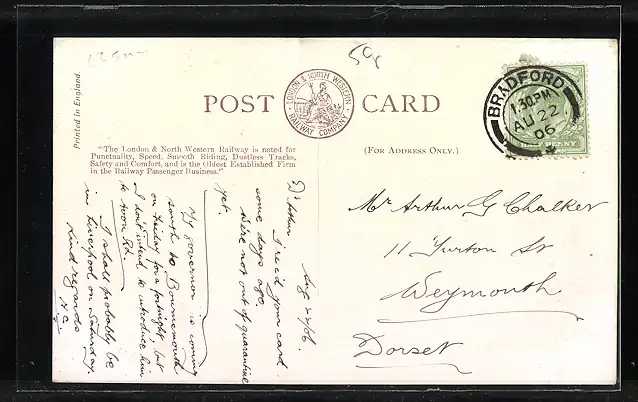 125m
50x
Printed in England.
POST CARD
LONDON & NORTH WESTERN
RAILWAY COMPANY
BRADFORD
1.30PM
AU 22
06
HALF PENNY
"The London & North Western Railway is noted for
Punctuality, Speed, Smooth Riding, Dustless Tracks,
Safety and Comfort, and is the Oldest Established Firm
in the Railway Passenger Business."
(FOR ADDRESS ONLY.)
Mr Arthur G Chalker
11 Turton St
Weymouth
Dorset
Aug 22/06
Dr Arthur
I rec'd your card
some days ago.
We're not out of quarantine
yet.
My governor is coming
south to Bournemouth
on Friday for a fortnight but
I don't intend to introduce him
to
I shall probably be
in Liverpool on Saturday
Kind regards